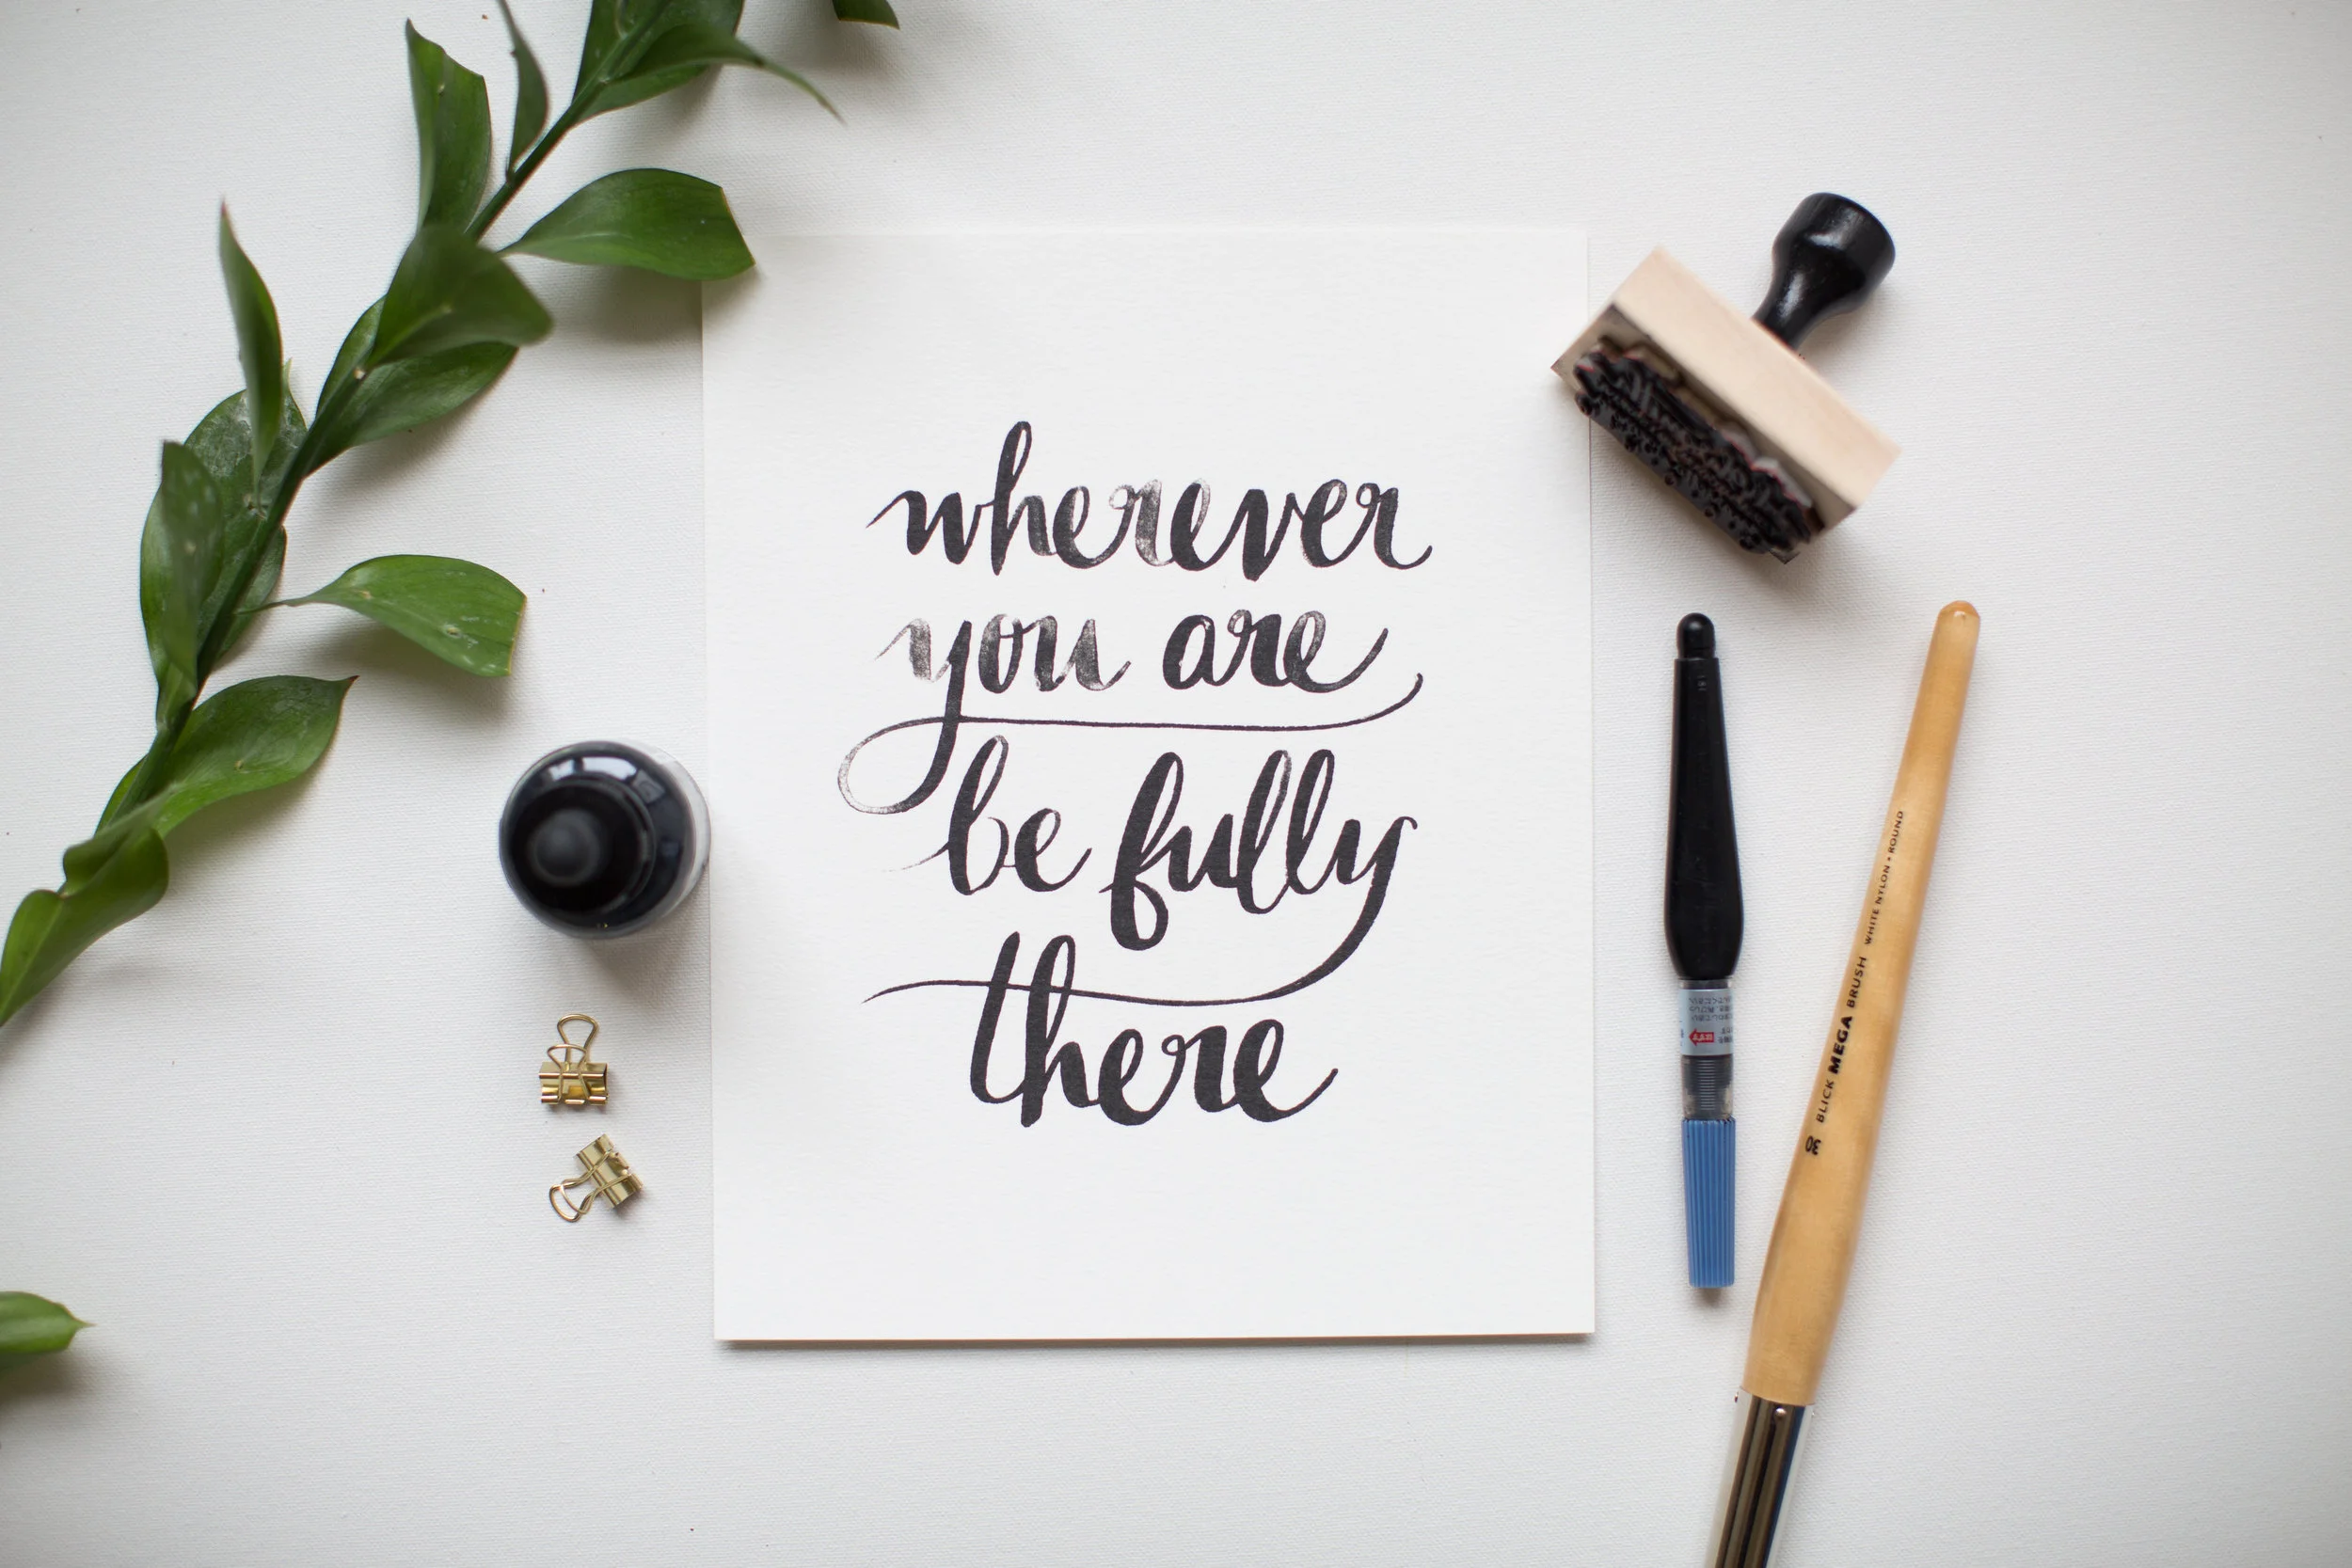 wherever
you are
be fully
there
30 BLICK MEGA BRUSH WHITE NYLON • ROUND